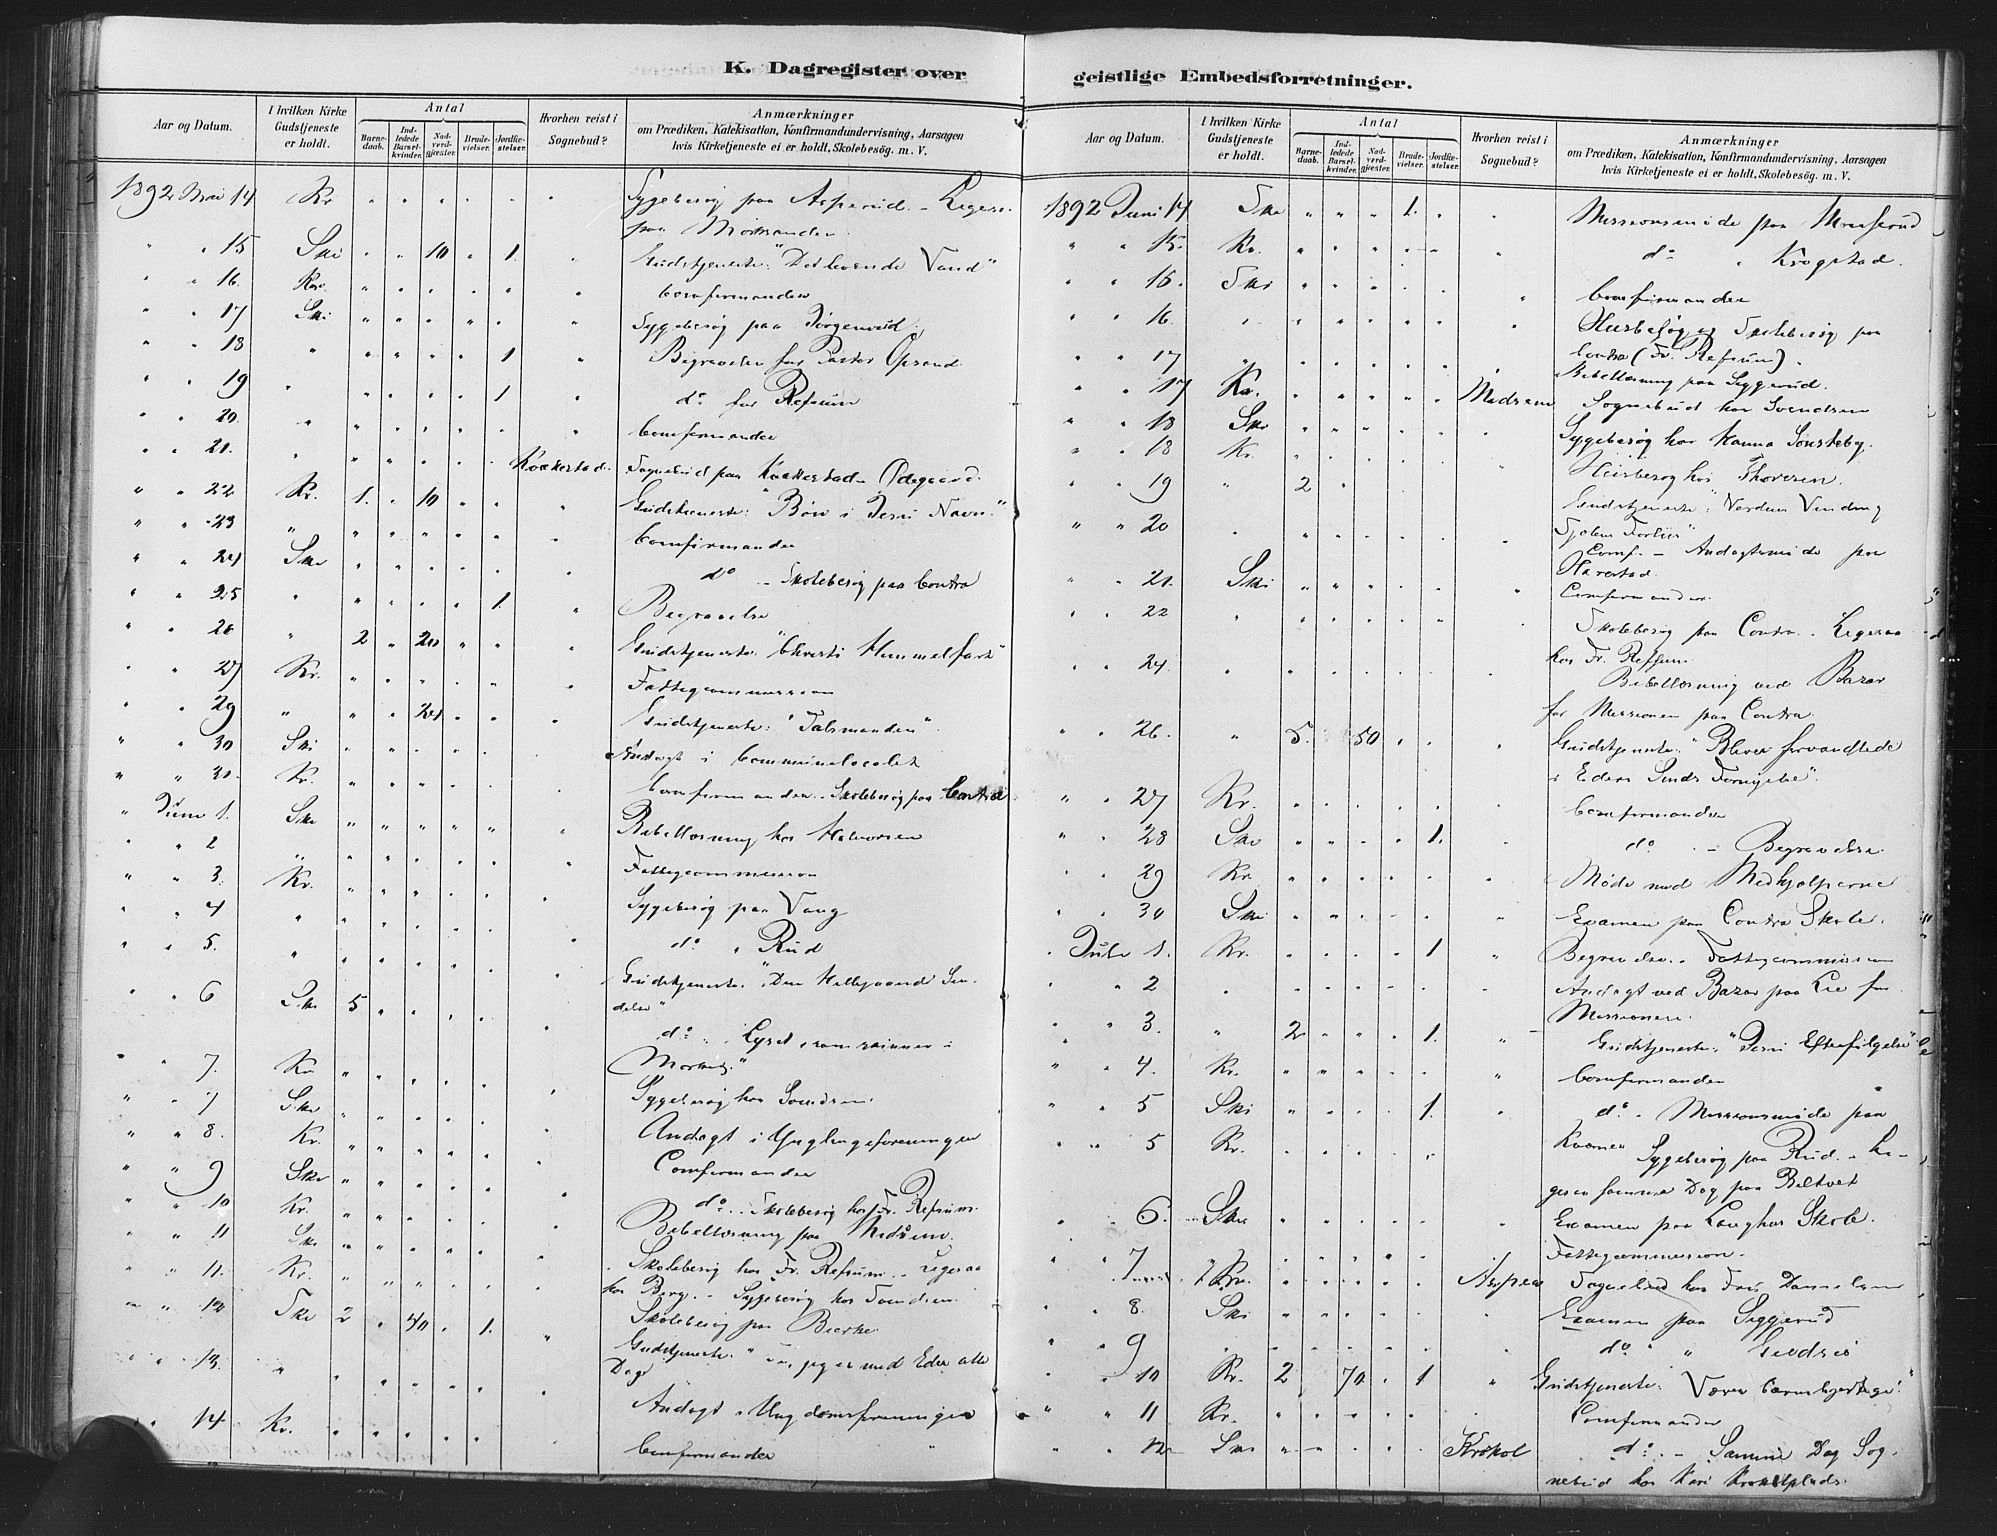 K. Dagregister over
Aar og Datum. I hvilken Kirke Gudstjeneste er holdt. Antal Barnedaab. Indledede Barselkvinder. Nadverdgjæster. Brudevielser. Jordfæstelser. Hvorhen reist i Sognebud? Anmærkninger om Prædiken, Katekisation, Konfirmandundervisning, Aarsagen hvis Kirketjeneste ei er holdt, Skolebesøg. m. V.
1892 Mai 14 Kr. " " " " " " Sygebesøg paa Asperud. - Ligesaa
paa
" " 15 Ski " " 10 " 1. " Gudstjeneste: "Det levende Vand"
" " 16. Kr. " " " " " " Comfirmander
" " 17 Ski " " " " " " Sygebesøg paa Jørgenrud.
" " 18 " " " " " 1 " Begravelse for Pastor Opsand.
" " 19 " " " " " 1 " do for Refsum
" " 20. " " " " " " " Comfirmander
" " 21. " " " " " " Kvakestad. Sognebud paa Kvakestad - Ødegaard.
" " 22 Kr. 1. " 10 " " " Gudstjeneste: "Bøn i Jesu Navn."
" " 23 " " " " " " " Comfirmander
" " 24 Ski " " " " " " do - Skolebesøg paa Contra
" " 25 " " " " " 1. " Begravelse
" " 26 " 2 " 20 " " " Gudstjeneste: "Christi Himmelfart"
" " 27 Kr. " " " " " " Fattigcommission
" " 29 " " " 20 " " " Gudstjeneste: "Talsmanden"
" " 30 Ski " " " " " " Andagt i Communelocalet
" " 31. Kr. " " " " " " Comfirmander. Skolebesøg paa Contra
" Juni 1. Ski " " " " " " Bibellæsning hos Halvorsen
" " 2 " " " " " " Fattigcommission
" " 3. Kr. " " " " " Sygebesøg paa Vang
" " 4 " " " " " " " do " Rud
" " 5. " " " " " " " Gudstjeneste: "Den Helligaand Sen-
delse"
" " 6 Ski 5 " " " " " do " "Lyset som skinner i
Mørket."
" " 7. Kr. " " " " " " Sygebesøg hos Svendsen.
" " 7 Ski " " " " " Andagt i Ynglingeforeningen
" " 8. Kr. " " " " " " Comfirmander
" " 9 Ski " " " " " " do. Skolebesøg hos Fr. Refsum.
" " 10 Kr. " " " " " Bibellæsning paa Midsem.
" " 11 Ski " " " " " Skolebesøg hos Fr. Refsum. - Ligesaa
hos Berg. - Sygebesøg hos Svendsen.
" " 11. Kr. " " " " " Skolebesøg paa Bierke.
" " 12 Ski 2 " 40 " 1. " Gudstjeneste. " jeg er med Eder alle
Dage
" " 13. " " " " " " " Andagt i Ungdomsforeningen
" " 14 Kr. " " " " " Comfirmander
geistlige Embedsforretninger.
Aar og Datum. I hvilken Kirke Gudstjeneste er holdt. Antal Barnedaab. Indledede Barselkvinder. Nadverdgjæster. Brudevielser. Jordfæstelser. Hvorhen reist i Sognebud? Anmærkninger om Prædiken, Katekisation, Konfirmandundervisning, Aarsagen hvis Kirketjeneste ei er holdt, Skolebesøg. m. V.
1892 Juni 14 Ski " " " 1. " " Missionsmøde paa
" " 15. Kr. " " " " " do " Krogstad.
" " 16. Ski " " " " " Comfirmander
" " 16 " " " " " " " Husbesøg og Skolebesøg paa
Contra (Fr. Refsum).
" " 17 " " " " " " " Bibellæsning paa Siggerud.
" " 17 Kr. " " " " " Midsem Sognebud hos Svendsen
" " 18 Ski " " " " " " Sygebesøg hos Hanna Sønsteby.
" " 18 Kr. " " " " " " Husbesøg hos Thoresen.
" " 19 " 2 " Gudstjeneste: "Verdens Vinding
Sjælens Forliis"
" " 20 " " " " " " " Comf. - Andagtsmøde paa
Harestad
" " 21. Ski " " " " " " Comfirmander.
" " 22 " " " " " " " Skolebesøg paa Contra. Ligesaa
hos Fr. Refsum
" " 24. " " " " " " " Bibellæsning ved Bazar
for Missionen paa Contra
" " 26. " 5. " 50 " " " Gudstjeneste: "Bliver forvandlede
i Eders Sinds Fornyelse".
" " 27 Kr. " " " " " " Comfirmander
" " 28 Ski " " " " 1. " do. - Begravelse.
" " 29 Kr. " " " " " " Møde med Medhjælperne
" " 30 Ski " " " " " " Examen paa Contra Skole.
" Juli 1. Kr. " " " " 1 " Begravelse. - Fattigcommission
" " 2 " " " " " " " Andagt ved Bazar paa Lie for
Missionen.
" " 3. " 2 " " " 1. " Gudstjeneste: "Jesu Efterfølgelse"
" " 4. Kr. " " " " " " Comfirmander
" " 5 Ski " " " " 1. " do. Missionsmøde paa
" " 5 Kr. " " " " " Sygebesøg paa Rud. - Li-
gesaa samme Dag paa Biltvet
" " 6. Ski " " " " " " Examen paa Langhus Skole.
" " 7 " " " " " " Fattigcommission.
Kr. " " " " " Aspen Sognebud hos Fru Danielsen
" " 8. Ski " " " " " Examen paa Siggerud
" " 9 " " " " " " do " "
" " 10 Kr. 2 70 " 1 " Gudstjeneste. Værer barmhjertige."
" " 11 Kr. " " " " " Comfirmander
" " 12 Ski " " " " " Kråkol do. - Samme Dag Sog-
nebud hos Kari